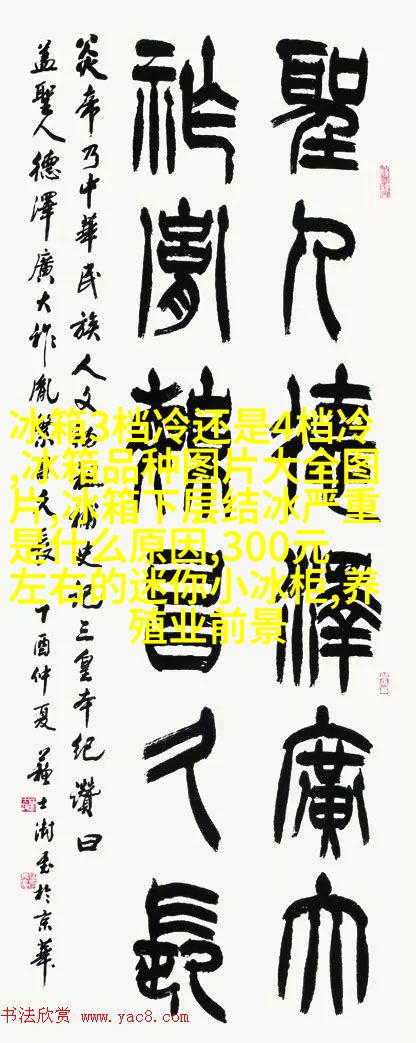 聖人德澤廣大
祚胤繁昌久長
炎帝乃中華民族人文始祖史記三皇本紀讚曰
蓋聖人德澤廣大祚胤繁昌久長 丁酉仲夏 蘇士澍書於京華
冰箱3档冷还是4档冷
,冰箱品种图片大全图
片,冰箱下层结冰严重
是什么原因,300元
左右的迷你小冰柜,养
殖业前景
书法欣赏 www.yac8.com